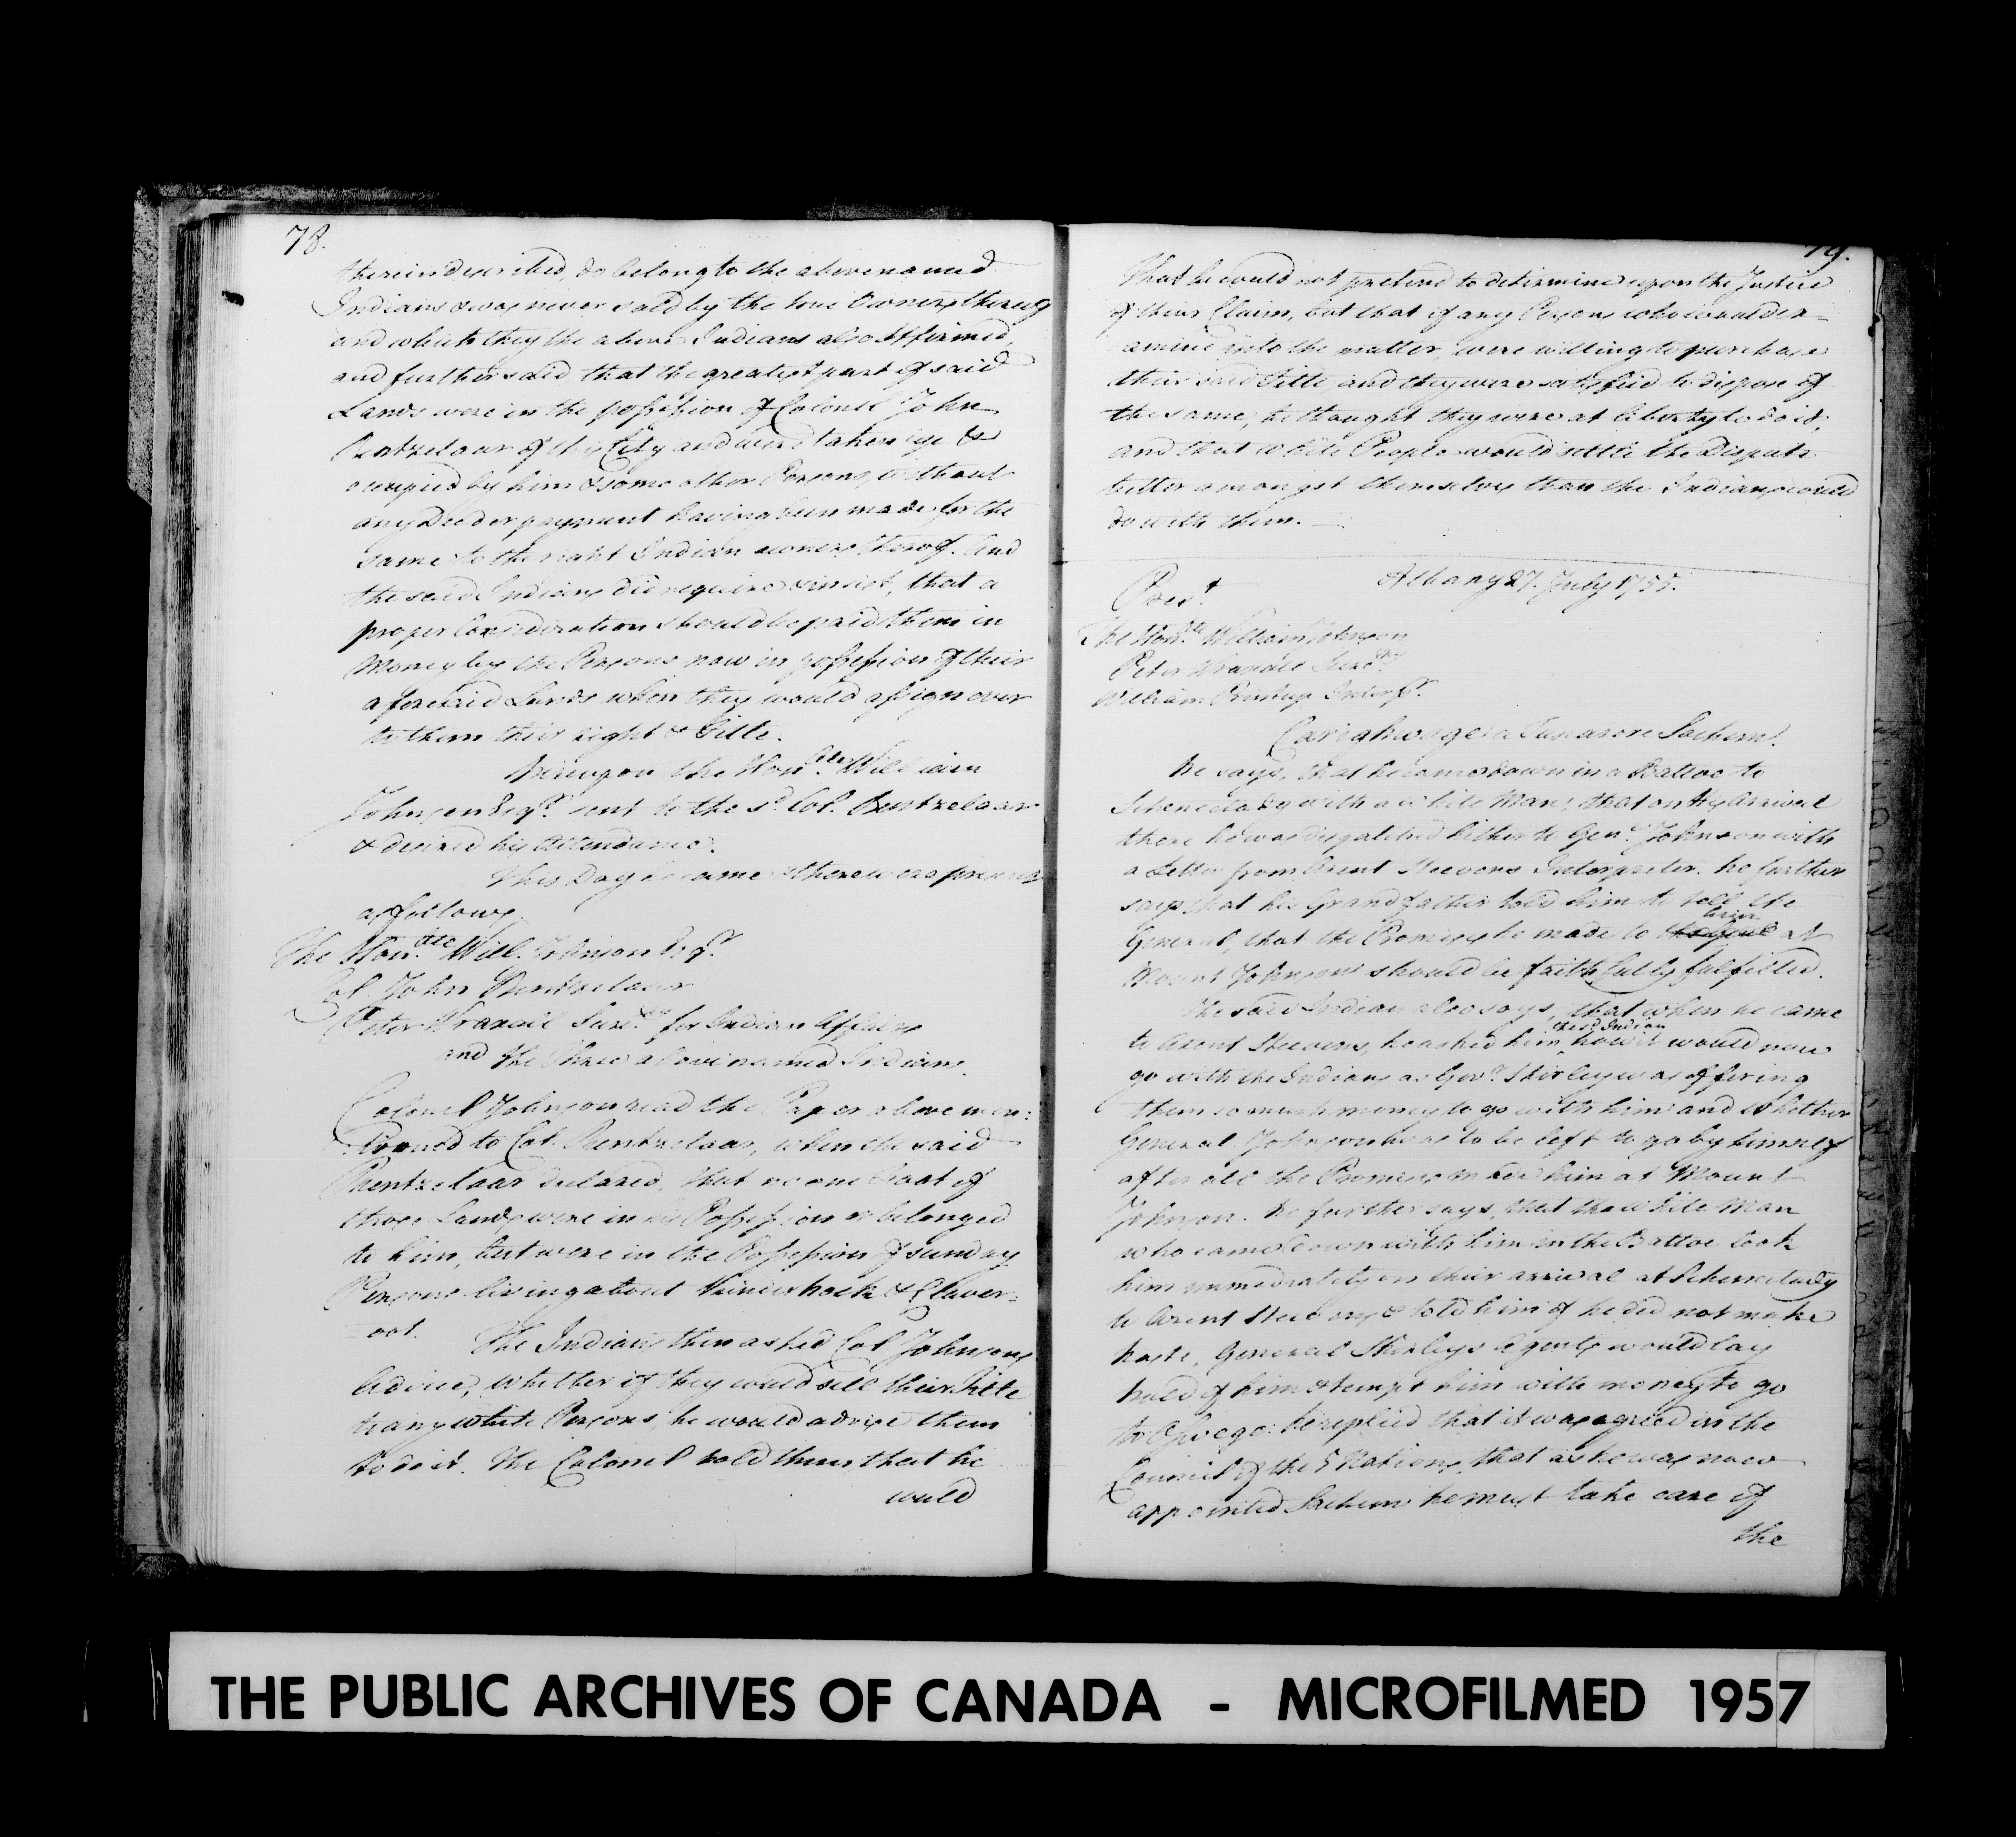 78.
therein described, do belong to the above named
Indians & was never sold by the true Owners thereof
and which they the above Indians also Affirmed,
and further said that the greatest part of said
Lands were in the possession of Colonel John
Rentzelaar of this City and were taken up &
occupied by him & some other Persons, without
any Deed or payment having been made for the
same to the right Indian owners thereof. And
the said Indians did require & insist, that a
proper Consideration should be paid them in
Money by the Persons now in possession of their
aforesaid Lands when they would assign over
to them their right & Title.
hereupon the Hon.ble William
Johnson Esqr. sent to the sd. Col. Rentzelaar
& desired his Attendance.
This Day he came & there were present
as follows.
The Hon.ble Will. Johnson Esqr.
Col. John Rentzelaar
Peter Wraxall Secry. for Indian Affairs
and the three above named Indians.
Colonel Johnson read the Paper above men:
:tioned to Col. Rentzelaar, when the said
Rentzelaar declared, that no one Foot of
those Lands were in his Possession or belonged
to him, but were in the Possession of sundry
Persons living about Kinderhoek & Claver=
=ack. The Indians then asked Col. Johnsons
Advice, whether if they could sell their Title
to any white Persons, he would advise them
to do it. The Colonel told them, that he
could
79.
That he could not pretend to determine upon the Justice
of their Claim, but that if any Persons who would ex=
amine into the matter, were willing to purchase
their said Title and they were satisfied to dispose of
the same, he thought they were at liberty to do it;
and that White People would settle the Dispute
better amongst themselves than the Indians could
do with them.
Albany 27. July 1755.
Prest.
The Hon.ble William Johnson
Peter Wraxall Secry.
William Printup Interpr.
Carighwage a Tuscarore Sachem.
he says, that he came down in a Battoe to
Schenectady with a white Man, that on Hs Arrival
there he was dispatched hither to Genl. Johnson with
a Letter from Arent Steevens Interpreter. he further
says that his Grandfather told him to tell the
General, that the Promises he made to him at
Mount Johnson should be faithfully fulfilled.
The said Indian also says, that when he came
to Arent Steevens, he asked him the sd. Indian how it would now
go with the Indians as Govr. Shirley was offering
them so much money to go with him and whether
General Johnson was to be left to go by himself
after all the Promises made him at Mount
Johnson. he further says, that the white Man
who came down with him in the Battoe took
him immediately on their arrival at Schenectady
to Arent Steevens & told him if he did not make
haste, General Shirleys Agents would lay
hold of him & tempt him with money to go
to Oswego: he replied that it was agreed in the
Council of the 5 Nations, that as he was now
appointed Sachem he must take care of
the
THE PUBLIC ARCHIVES OF CANADA - MICROFILMED 1957